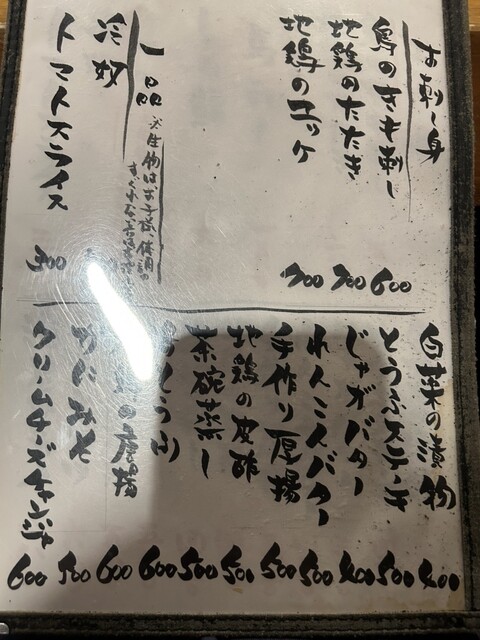 お刺し身
鳥のきも刺し 600
地鶏のたたき 700
地鶏のユッケ 700
一品
※生物は、お子様、体調の
すぐれない方は
冷奴
トマトスライス 300
白菜の漬物 400
とうふステーキ 500
じゃがバター 400
れんこんバター 500
手作り厚揚 500
地鶏の皮酢 500
茶碗蒸し 500
とうふ 600
の唐揚 600
かにみそ 500
クリームチーズチャンジャ 600